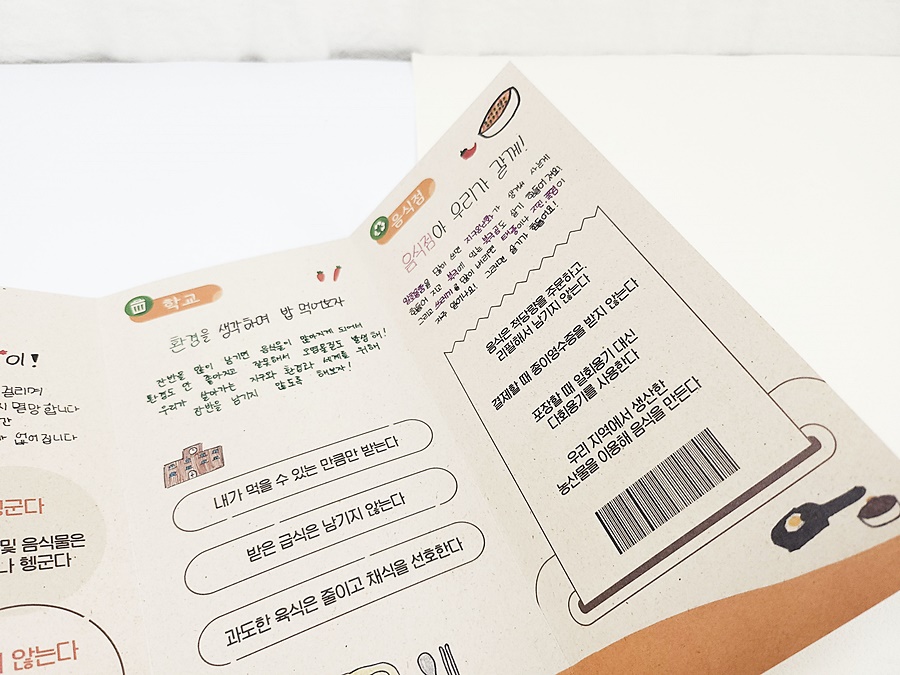 이!
걸리며
시 멸망 합니다
간
없어집니다
헹군다
및 음식물은
나 헹군다
않는다
학교
환경을 생각하며 밥 먹어보자
잔반을 많이 남기면 음식물이 많아지게 되어서
환경도 안 좋아지고 잘못해서 오염물질도 발생해!
우리가 살아가는 지구와 환경과 세계를 위해
잔반을 남기지 않도록 해보자!
내가 먹을 수 있는 만큼만 받는다
받은 급식은 남기지 않는다
과도한 육식은 줄이고 채식을 선호한다
음식점
음식점아 우리가 갈게!
일회용품을 많이 쓰면 지구온난화가
그리고 쓰레기를 많이 버리면
음식은 적당량을 주문하고,
리필해서 남기지 않는다
결제할 때 종이영수증을 받지 않는다
포장할 때 일회용기 대신
다회용기를 사용한다
우리 지역에서 생산한
농산물을 이용해 음식을 만든다